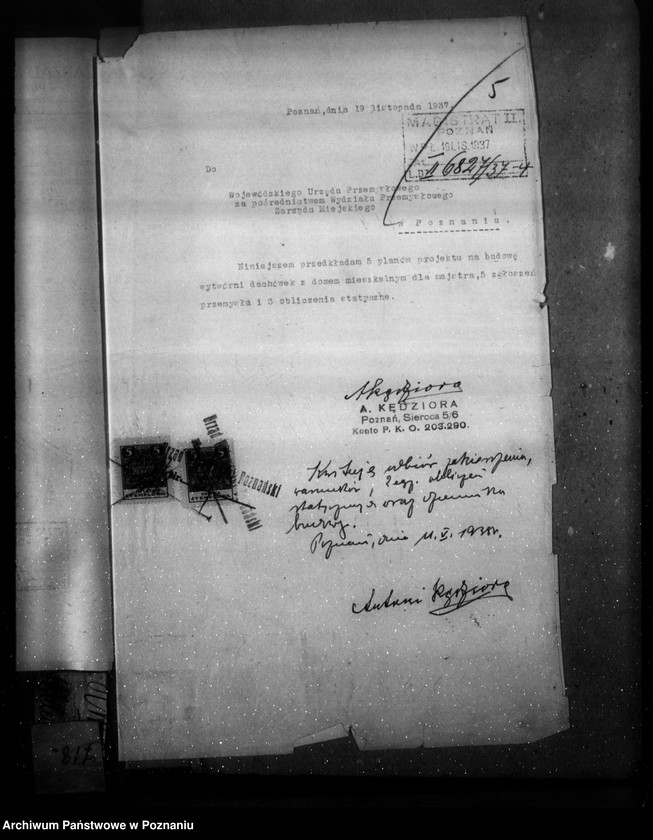 5
Poznań,dnia 19 listopada 1937.
MAGISTRAT II.
POZNAŃ
WPŁ. 19.LIS.1937
L.Dz. II 6827/37-4
Do
Wojewódzkiego Urzędu Przemysłowego
za pośrednictwem Wydziału Przemysłowego
Zarządu Miejskiego
w Poznaniu.
Niniejszem przedkładam 5 planów projektu na budowę
wytwórni dachówek z domem mieszkalnym dla majstra,5 zgłoszeń
przemysłu i 3 obliczenia statyczne.
AKędziora
A. KĘDZIORA
Poznań, Sieroca 5/6
Konto P. K. O. 203.290.
5 5
Urząd
Poznański
odbiór
warunków, 2 egz. obliczeń
statycznych oraz
budowy.
Poznań, dnia 11. V. 1938r.
Antoni Kędziora
817
Archiwum Państwowe w Poznaniu